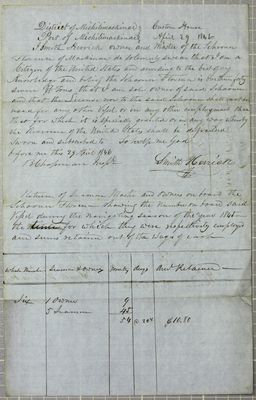 District of Michilimackinac Custom House
Port of Michilimackinac April 29 1846
I Smith Herrick owner and Master of the Schooner
Florence of Mackinac do solemnly swear that I am a
Citizen of the United States and
the Schooner Florence is
Tons that I am sole owner of said Schooner
and that the License now to the said Schooner shall not be
used for any other Vessel or in any other employment than
that for which it is specially granted or in any way whereby
the Revenue of the United States shall be defrauded
Sworn and subscribed to So help me God
before me this 29 April 1846
Smith Herrick
Return of Seamen Master and owners on board the
Schooner Florence showing the number on board said
Vessel during the navigating season of the year 184
the for which they were respectively employed
and sums retained out of the wages of each
Seamen & Owner Months days Amt Retained
Six 1 Owner 9
5 Seamen 45
54 @ 20¢ $10.80